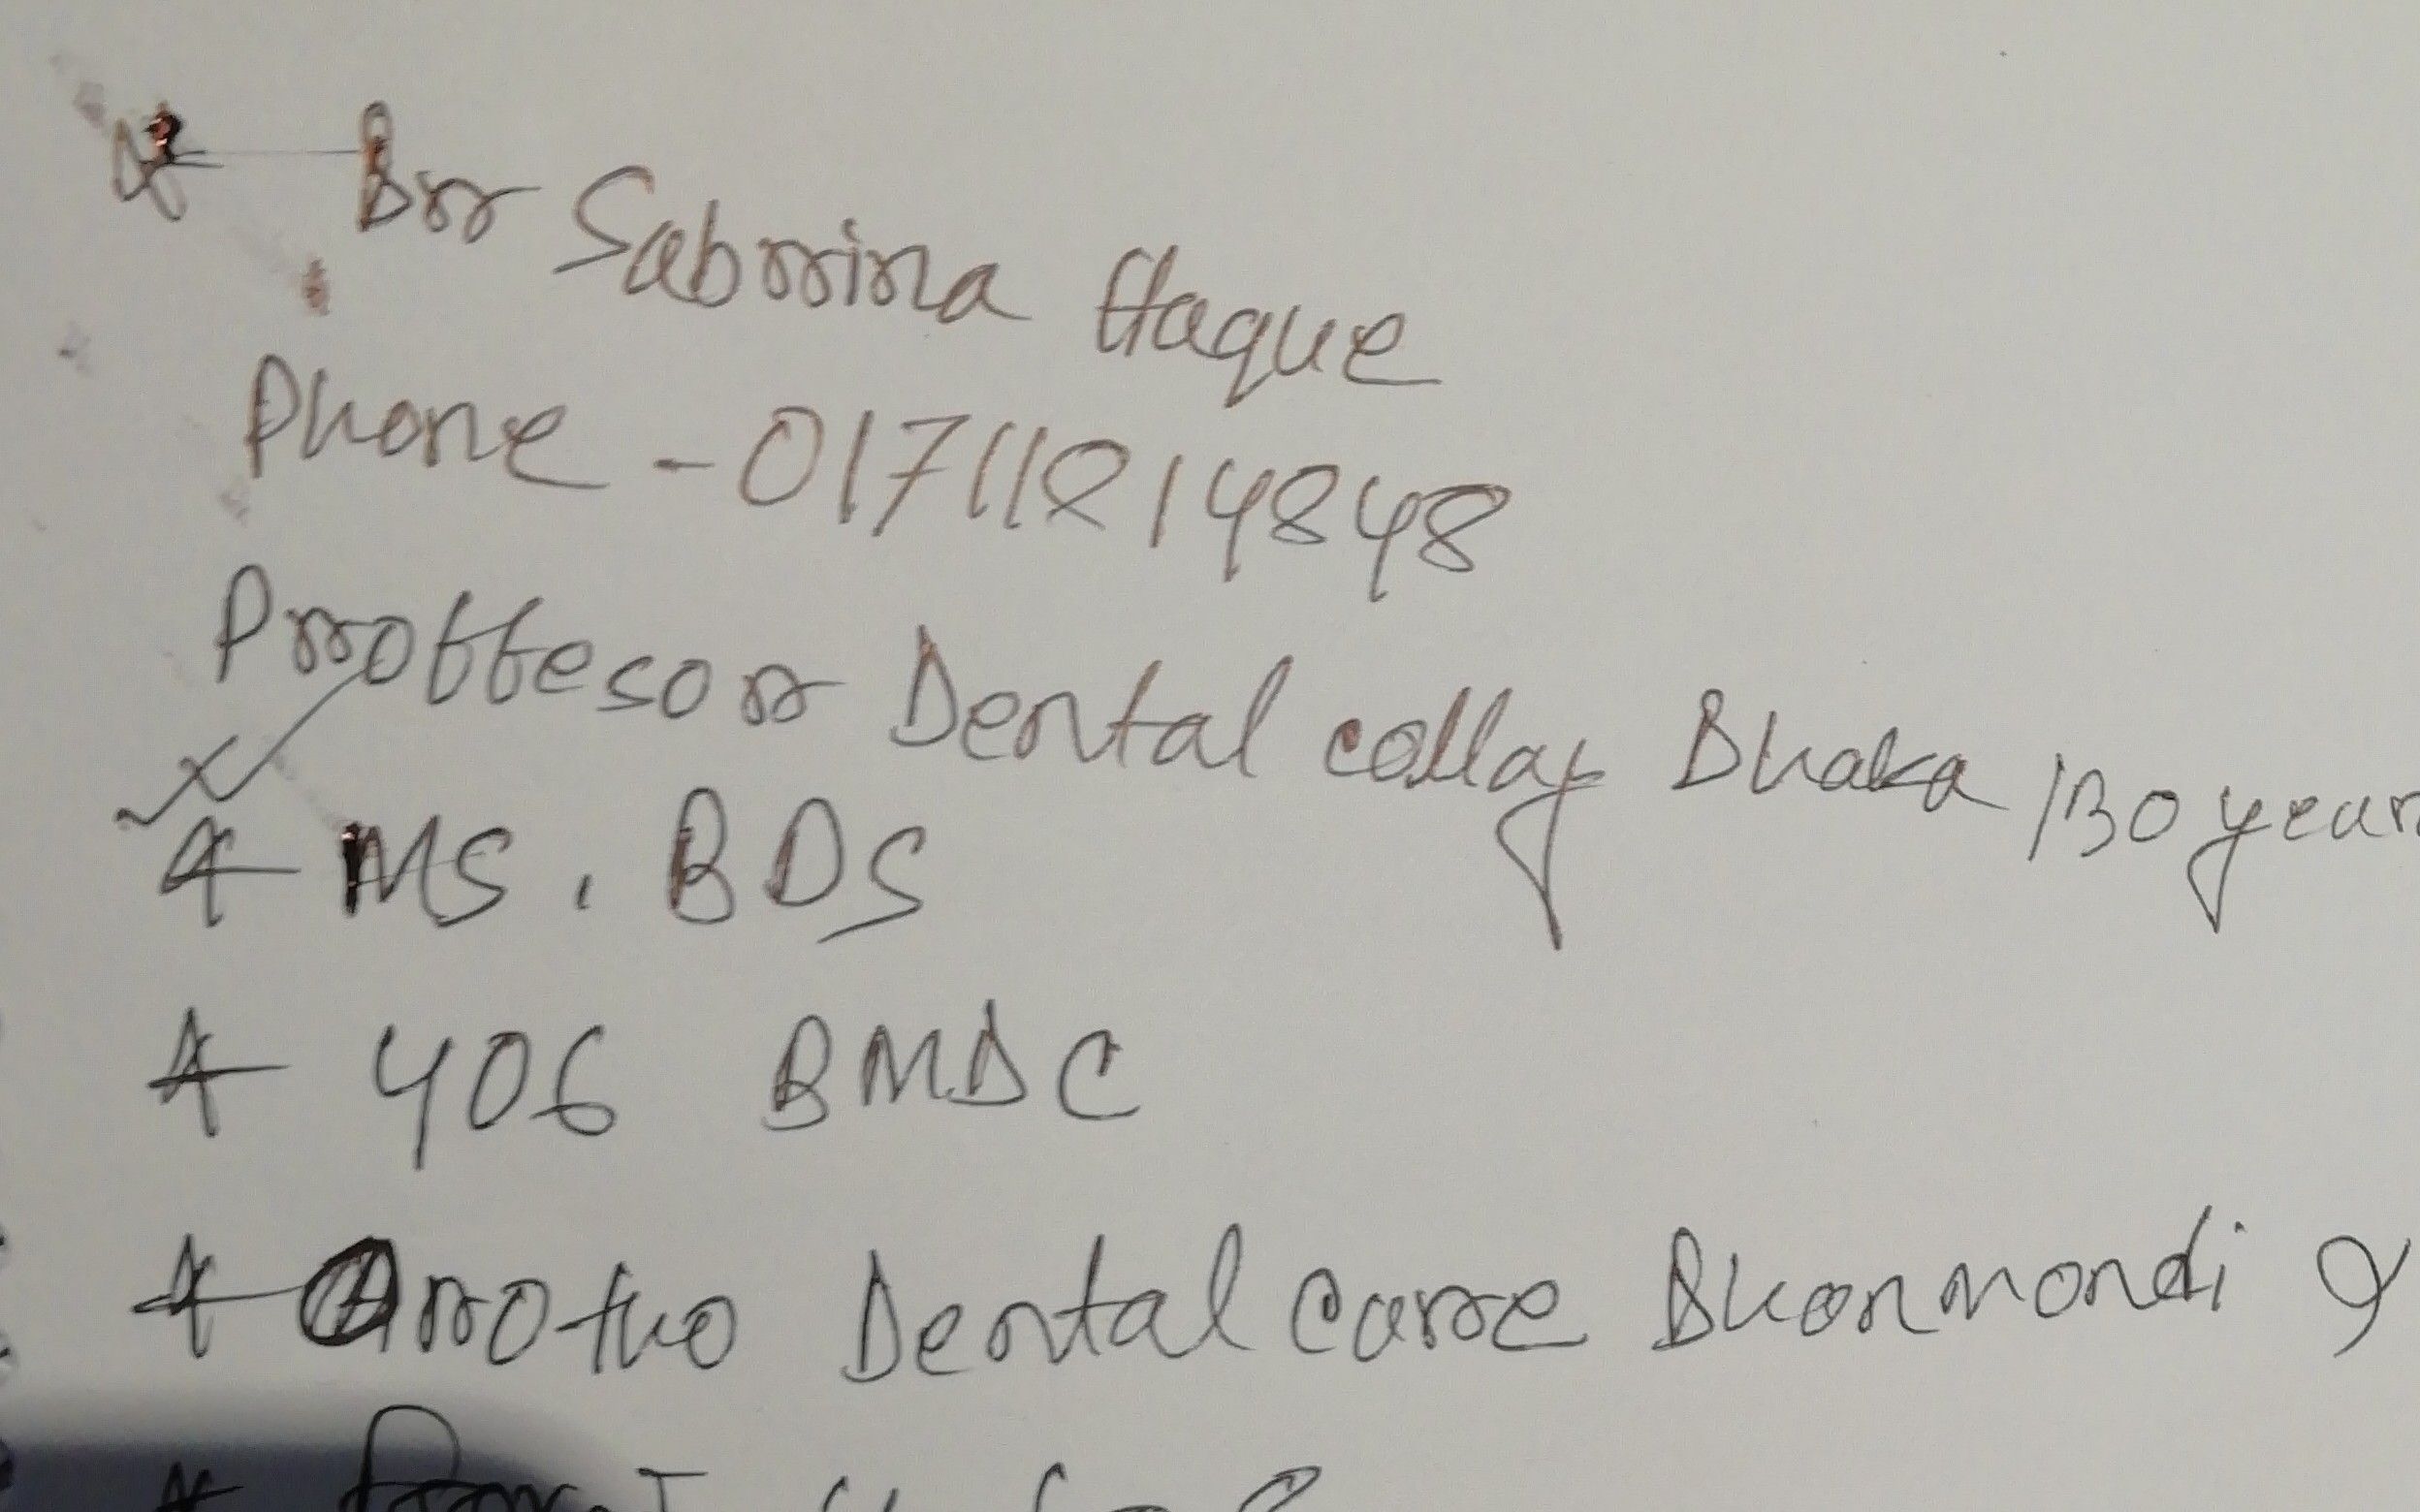 Drr Sabrrina Haque
Phone - 01711214848
Prroffesorr Dental collag Dhaka /30 year
MS, BDS
406 BMDC
Dental Carre Dhanmondi 9